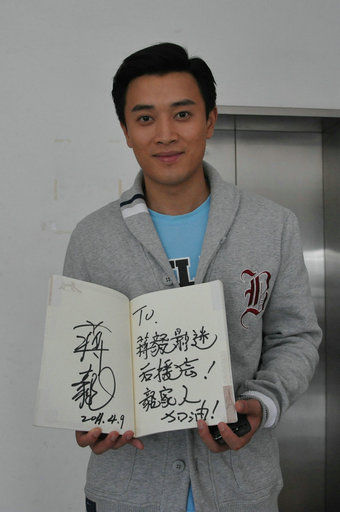 蒋
毅
2011.4.9
To.
蒋毅影迷
后援会!
毅家人
加油!
B